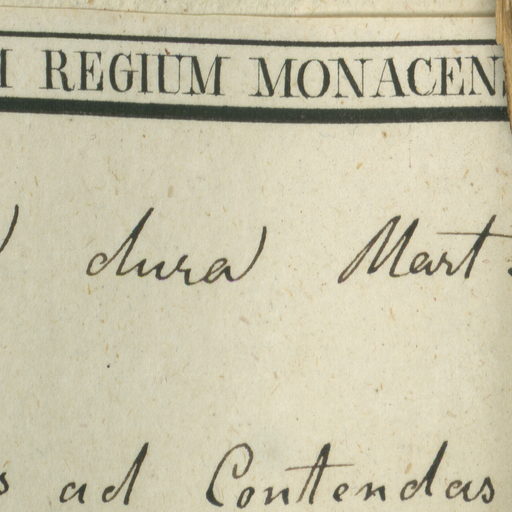 REGIUM MONACEN
dura Mart
ad Contendas